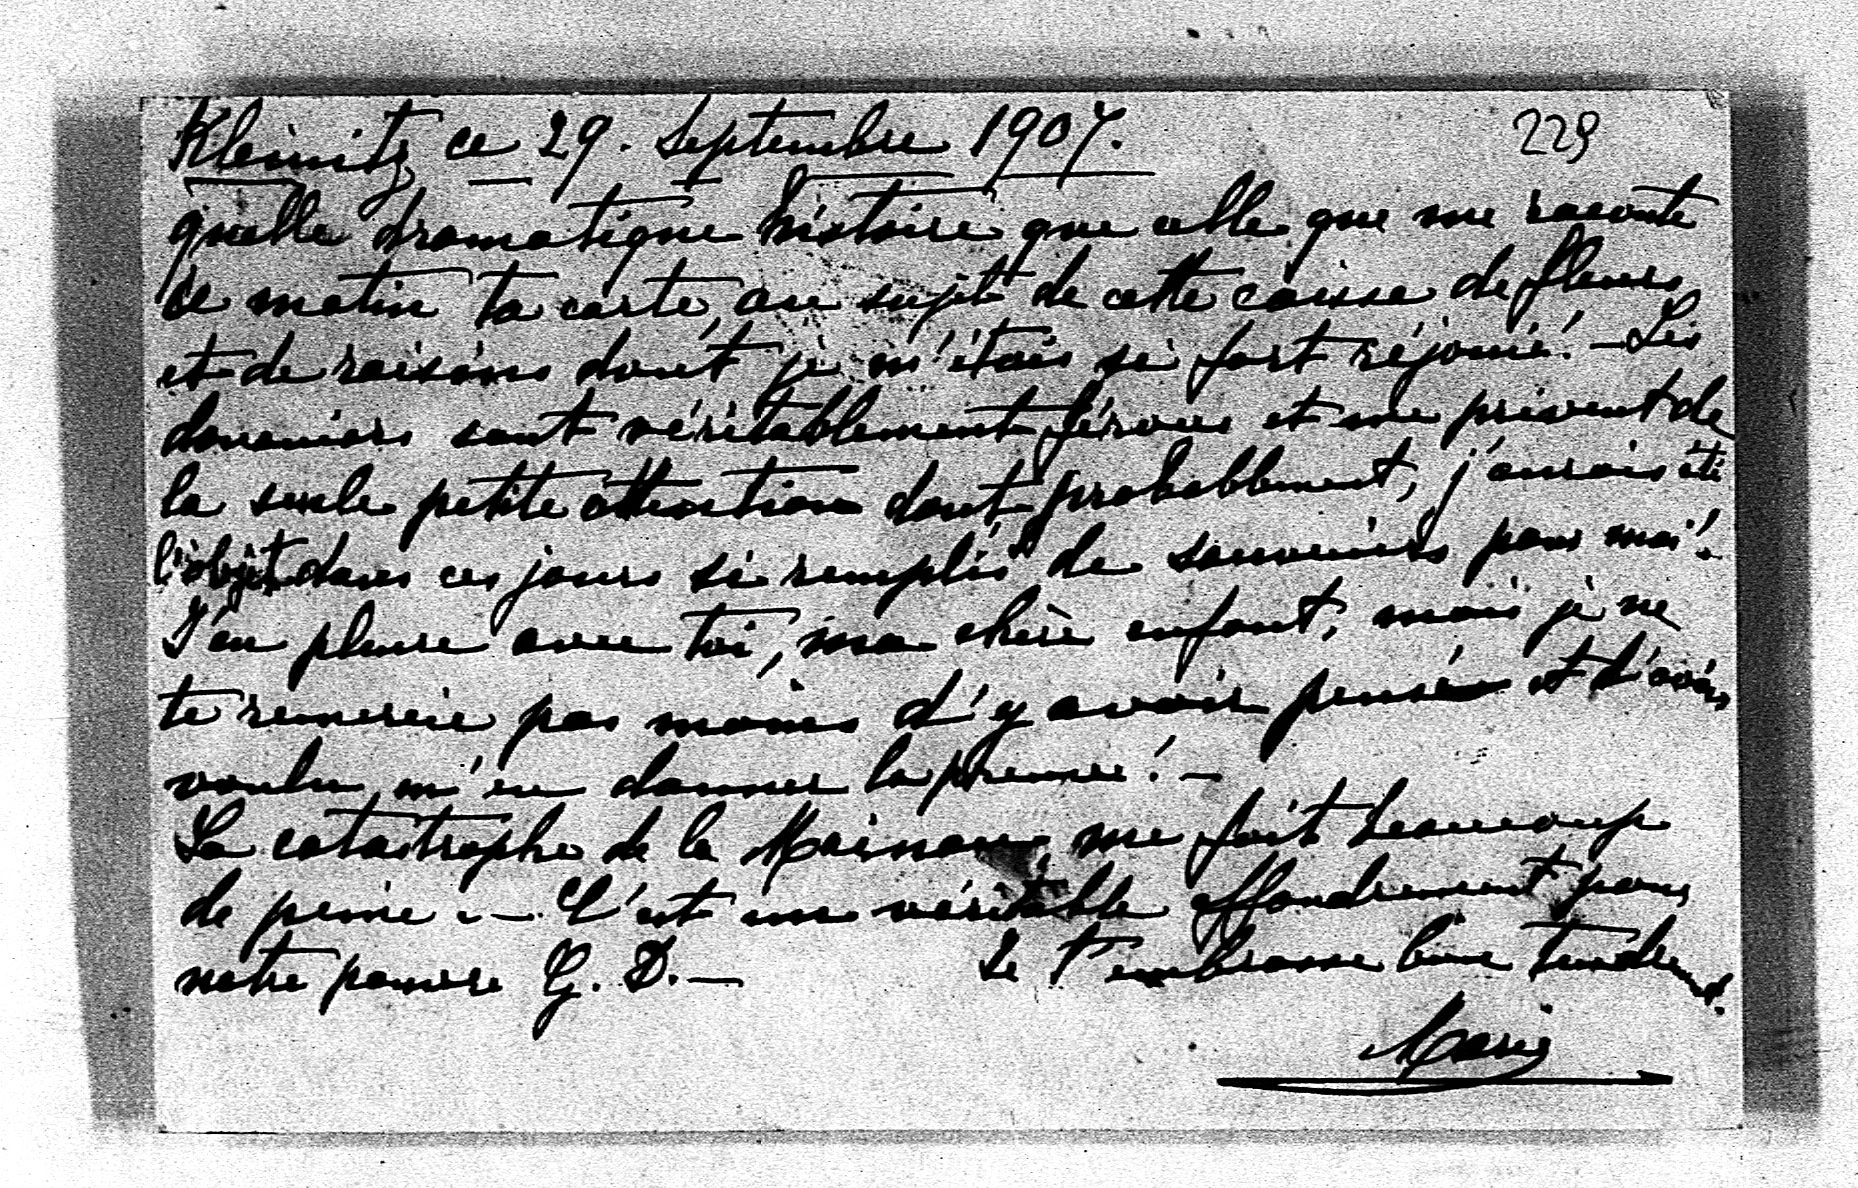 Kleinitz ce 29. Septembre 1907.
229
quelle dramatique histoire que celle que me raconte
ce matin ta carte, au sujet de cette caisse de fleurs
et de raisins dont je m'étais si fort réjouie! - Les
douaniers sont véritablement féroces et me privent de
la seule petite attention dont probablement, j'aurais été
l'objet dans ces jours si remplis de souvenirs pour moi!
J'en pleure avec toi, ma chère enfant, mais je ne
te remercie pas moins d'y avoir pensé et d'avoir
voulu m'en donner la preuve! -
La catastrophe de la Mainau, me fait beaucoup
de peine. - C'est un véritable effondrement pour
notre pauvre G. D. - Je t'embrasse bien tendrement.
Marie